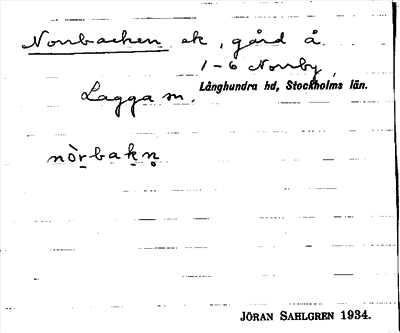 Norrbacken ek, gård å
1-6 Norrby
Lagga sn.
Långhundra hd, Stockholms län.
nòṟbaḵn̥
JÖRAN SAHLGREN 1934.